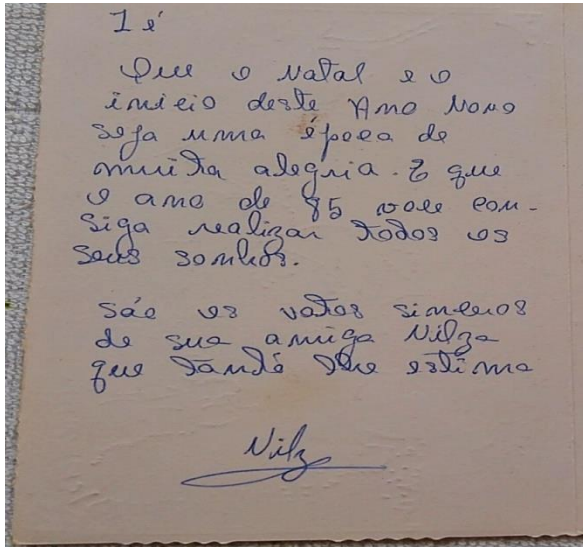 Zé
Que o Natal e o
inicio deste Ano Novo
seja uma época de
muita alegria. E que
o ano de 85 voce con-
siga realizar todos os
seus sonhos.
São os votos sinceros
de sua amiga Nilza
que tanto lhe estima
Nilz